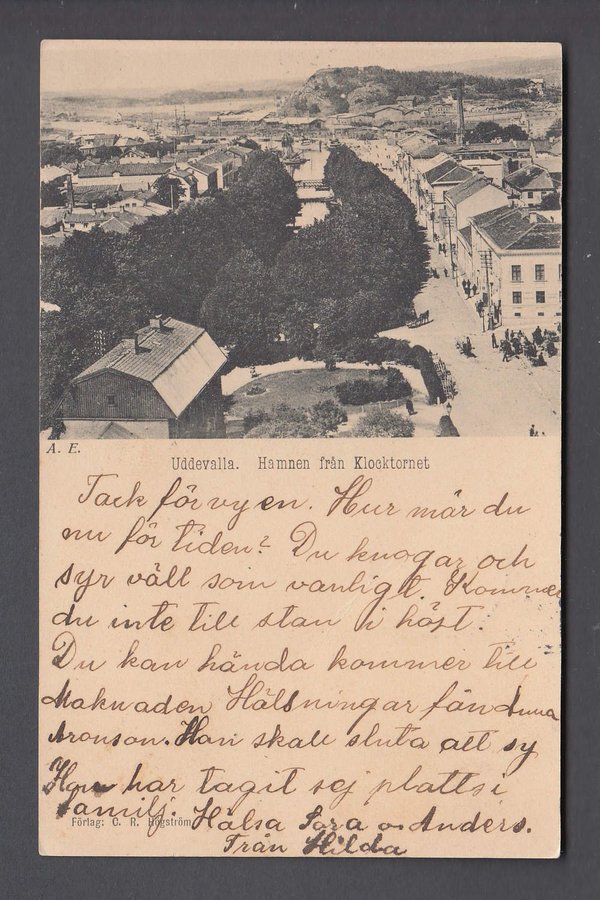 A. E.
Uddevalla. Hamnen från Klocktornet
Tack för vyen. Hur mår du
nu för tiden? Du knogar och
syr väll som vanligt. Kommer
du inte till stan i höst.
Du kan hända kommer till
Maknaden Hälsningar fån Anna
Aronson. Han skall sluta att sy
Hon har tagit sej platts i
familj.
Förlag: C. R. Högström
Hälsa Sara o Anders.
Från Hilda